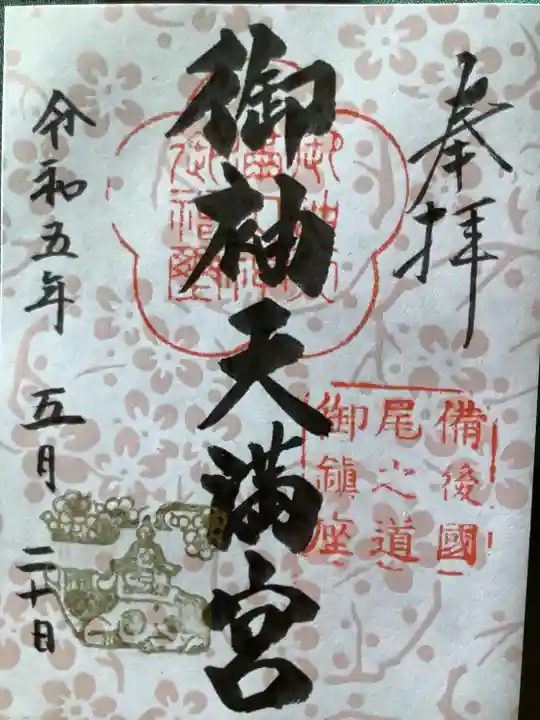 奉拝
備後國
尾之道
御鎮座
御袖天満宮
令和五年 五月 二十日